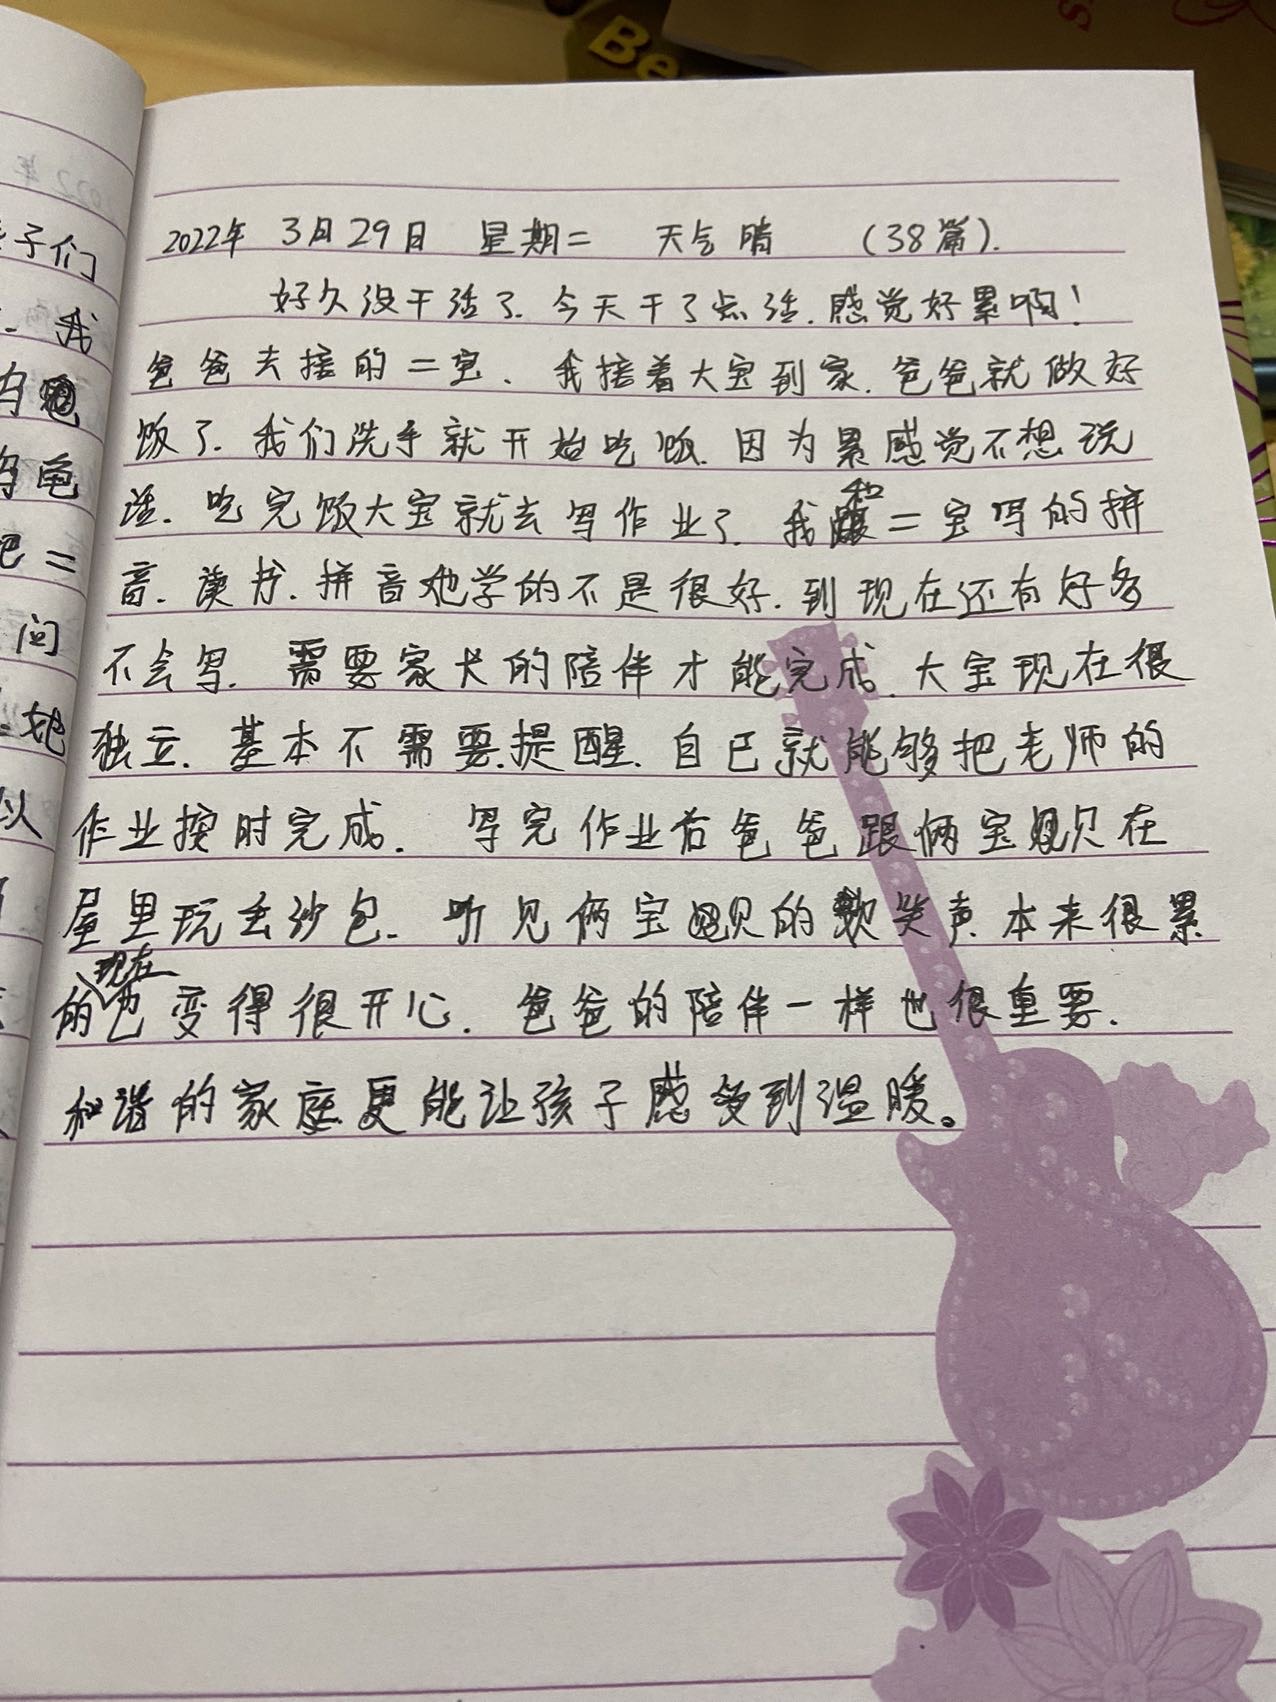 Be
2022年 3月29日 星期二 天气晴 (38篇).
好久没干活了.今天干了点活.感觉好累啊!
爸爸去接的二宝.我接着大宝到家.爸爸就做好
饭了.我们洗手就开始吃饭.因为累感觉不想说
话.吃完饭大宝就去写作业了.我和二宝写的拼
音.读书.拼音她学的不是很好.到现在还有好多
不会写.需要家长的陪伴才能完成.大宝现在很
独立.基本不需要提醒.自己就能够把老师的
作业按时完成.写完作业后爸爸跟俩宝贝在
屋里玩丢沙包.听见俩宝贝的欢笑声.本来很累
的现在也变得很开心.爸爸的陪伴一样也很重要.
和谐的家庭更能让孩子感受到温暖。
子们
我
乌龟
把二
问
她
以